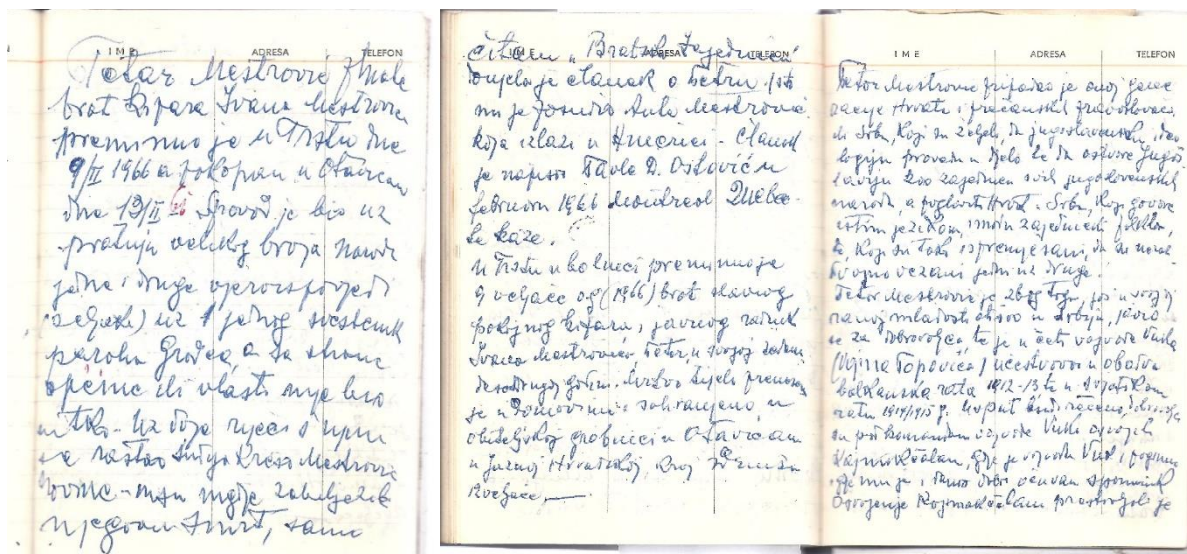 IME ADRESA TELEFON
Petar Meštrović zvani
brat kipara Ivana Meštrovića
preminuo je u Trstu dne
9/II 1966 a pokopan u Otavicam
dne 13/II Sprovod je bio uz
pratnju velikog broja naroda
jedne i druge vjeroispovjedi
uz 1 jednog svećenik
paroha Gradca, a sa strane
općine ili vlasti nije bio
nitko - Uz dvije riječi s njim
se rastao Krešo Meštrović
Novine - nisu nigdje zabilježile
njegovu smrt, samo
IME ADRESA TELEFON
čitam u Bratsko Zajedničar
donjela je članak o Petru
mi je Meštrović
koja izlazi u Americi - Članak
je napisao Pavle D. Ostović u
februaru 1966 Montreal Quebec
Te kaže.
U Trstu u bolnici preminuo je
9 veljače og (1966) brat slavnog
pokojnog kipara, javnog radnik
Ivana Meštrovića, Petar, u svojoj
godini. Mrtvo tijelo preneseno
je u domovinu i sahranjeno u
obiteljskoj grobnici u Otavicam
u Južnoj Hrvatskoj, kraj
veljače
IME ADRESA TELEFON
Petar Meštrović pripadao je onoj gene
raciji Hrvata i prečanskih pravoslavaca
ili Srba, koji su željeli da jugoslavensku ideo
logiju provedu u djelo te da ostvare Jugos
laviju kao zajednicu svih jugoslavenskih
naroda, a poglavito Hrvat. i Srba, koji govore
istim jezikom, imaju zajednički folklor,
te, koji su tako ispremješani, da su
vezani jedni uz druge.
Petar Meštrović je zbog toga, još u svojoj
ranoj mladosti otišao u Srbiju, javio
se za dobrovoljca te je u četi vojvode Vuka
(Vojina Popovića) učestvovao u obadva
balkanska rata 1912-13 te u Svjetskom
ratu 1914/1915 g.
su pod komandom vojvode Vuka osvojili
Kajmakčalan, gdje je vojvoda Vuk i poginuo
gdje mu je i danas dobro očuvan spomenik
Osvojenje Kajmakčalana je